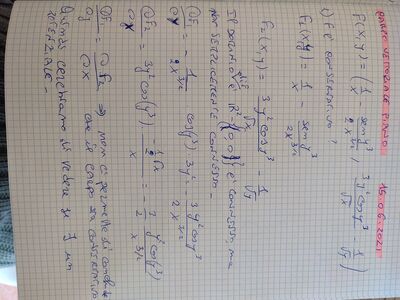 CAMPO VETTORIALE PIANO 15.06.2021
F(x,y) = (1/x - sen y³/2x^{3/2}, 3y² cos y³/√x - 1/√y)
1) È CONSERVATIVO?
F₁(x,y) = 1/x - sen y³/2x^{3/2}
F₂(x,y) = 3y² cos y³/√x - 1/√y
IL DOMINIO È R² - {(0,0)} È CONNESSO, MA
NON SEMPLICEMENTE CONNESSO -
∂F₁/∂y = - 1/2x^{3/2} cos(y³) 3y² = - 3y² cos(y³)/2x^{3/2}
∂F₂/∂x = 3y² cos(y³) · = - 3/2 y² cos(y³)/x^{3/2}
∂F₁/∂y = ∂F₂/∂x ⇒ non ci permette di
che il campo sia conservativo
Quindi cerchiamo di vedere se ∃ un
POTENZIALE -